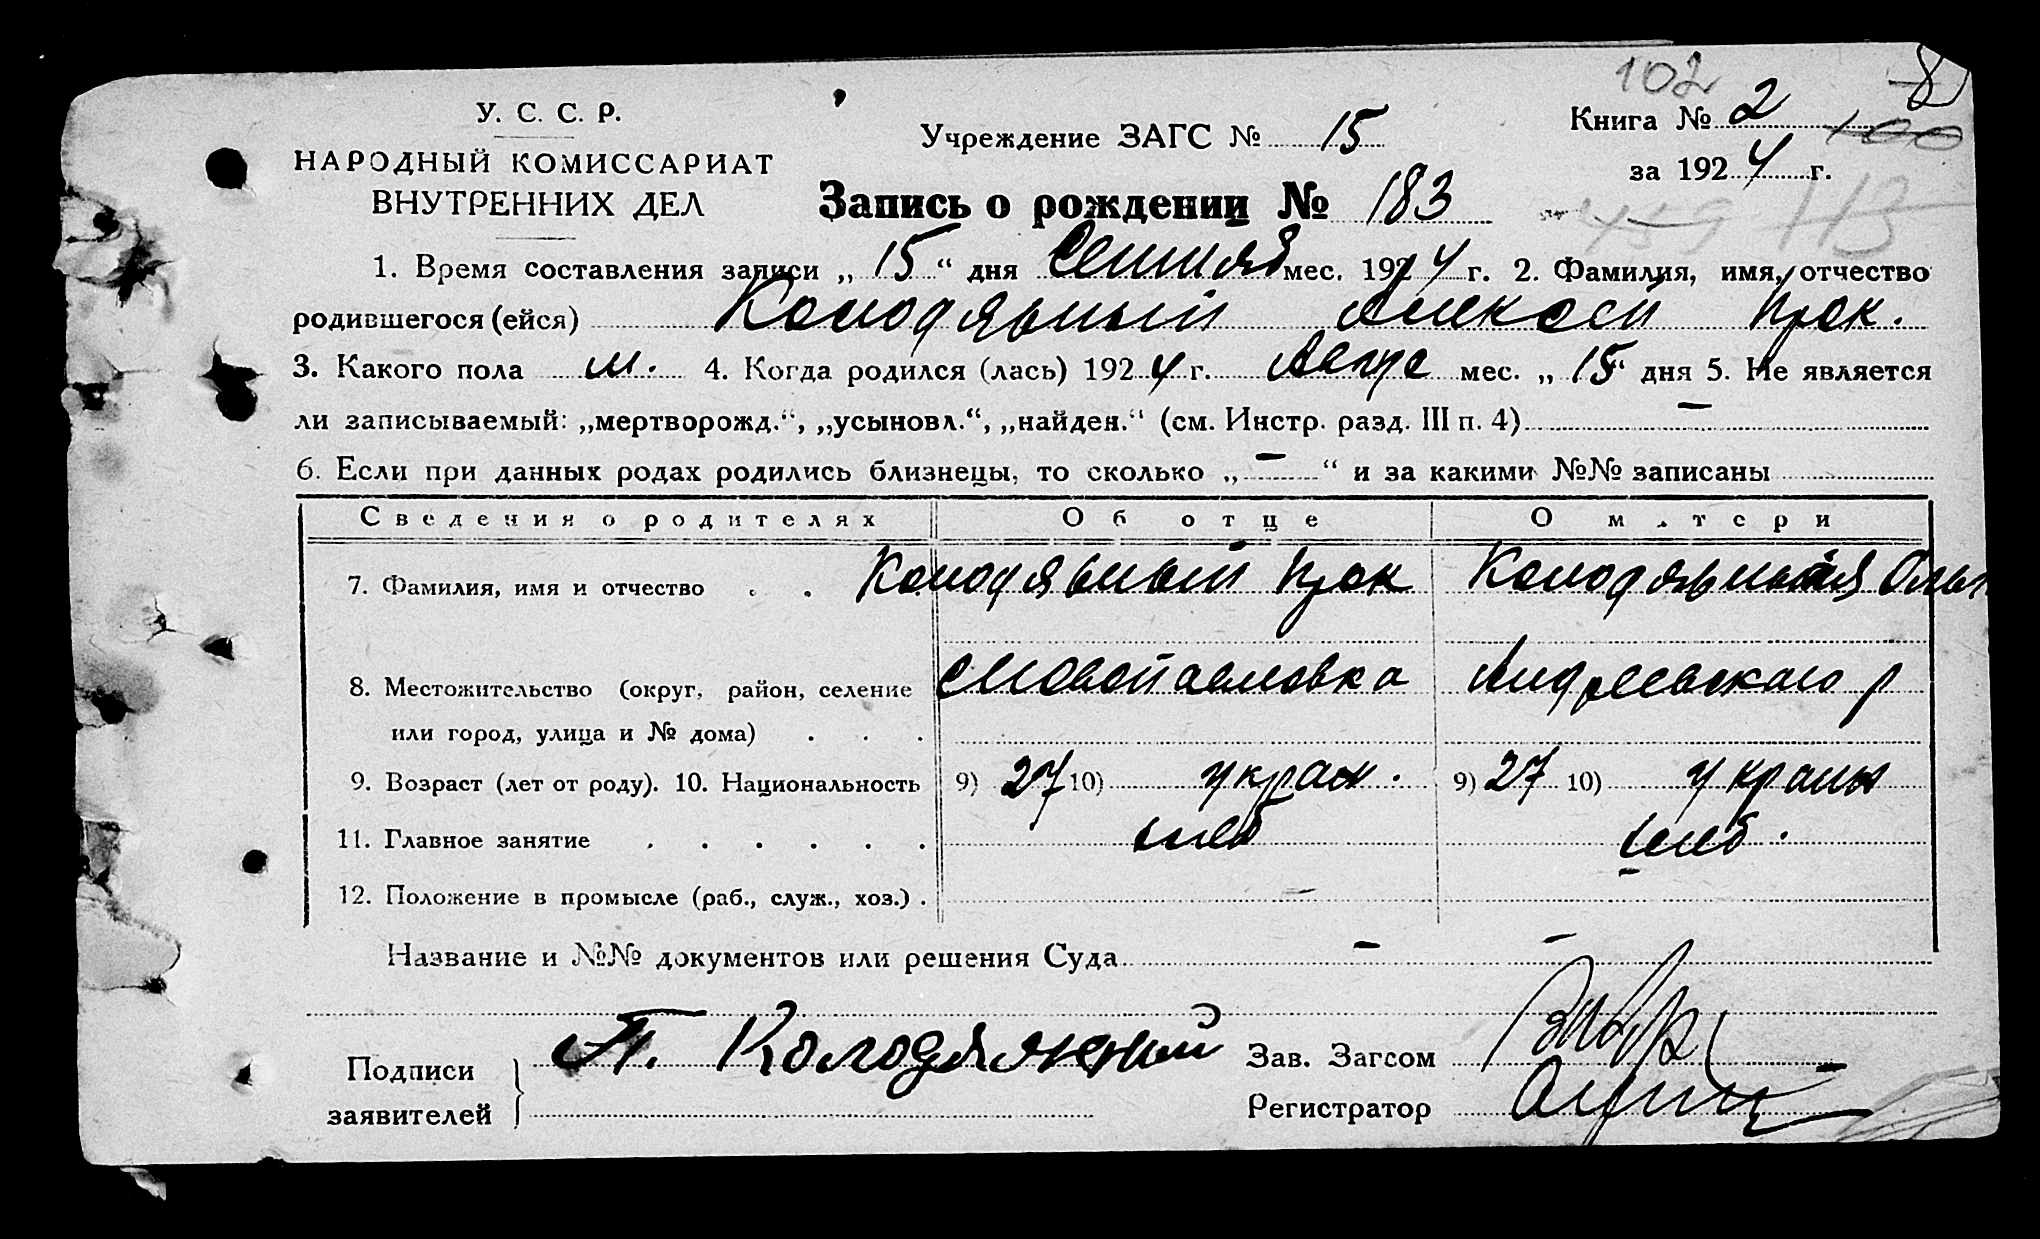 102
8
У. С. С. Р.
НАРОДНЫЙ КОМИССАРИАТ
ВНУТРЕННИХ ДЕЛ
Учреждение ЗАГС № 15
Книга № 2
100
за 1924 г.
Запись о рождении № 183
459 113
1. Время составления записи „ 15 “ дня Сентяб мес. 1924 г. 2. Фамилия, имя, отчество
родившегося (ейся) Колодяжный Алексей Прок.
3. Какого пола м. 4. Когда родился (лась) 1924 г. Авгус мес. „ 15 “ дня 5. Не является
ли записываемый: „мертворожд.“, „усыновл.“, „найден.“ (см. Инстр. разд. III п. 4) —
6. Если при данных родах родились близнецы, то сколько „ — “ и за какими №№ записаны
Сведения о родителях Об отце О матери
7. Фамилия, имя и отчество . . Колодяжный Прок Колодяжная Ольг
8. Местожительство (округ, район, селение с Новопавловка Андреевского р
или город, улица и № дома) . . .
9. Возраст (лет от роду). 10. Национальность 9) 27 10) украин. 9) 27 10) украин
11. Главное занятие . . . . . . хлеб хлеб.
12. Положение в промысле (раб., служ., хоз.) .
Название и №№ документов или решения Суда — —
Подписи
заявителей
П. Колодяжний
Зав. Загсом
Регистратор